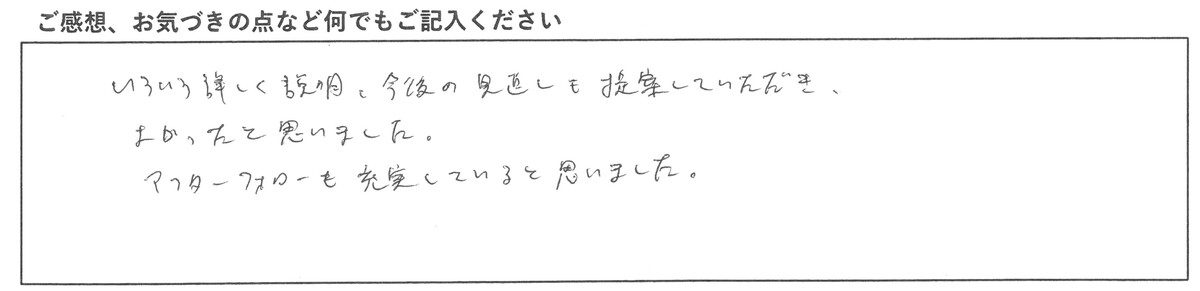 ご感想、お気づきの点など何でもご記入ください
いろいろ詳しく説明、今後の見直しも提案していただき、
よかったと思いました。
アフターフォローも充実していると思いました。